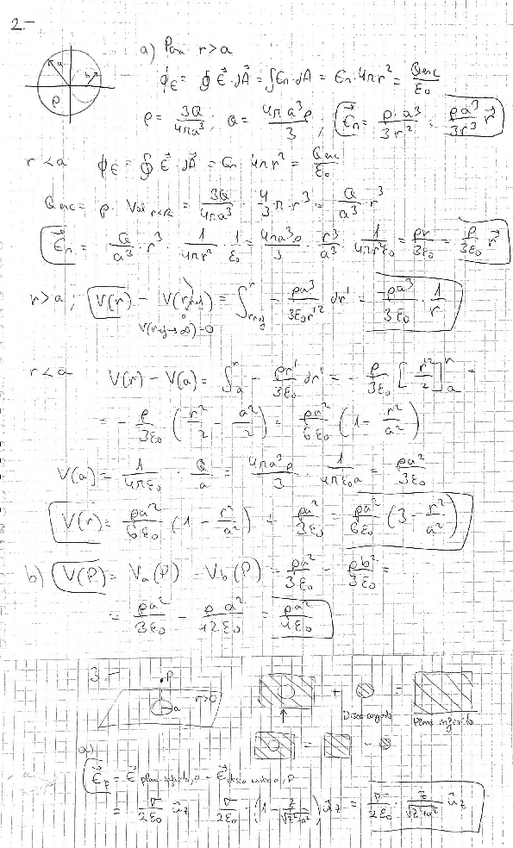 2.-
a) Para r > a
ϕ_E = ∮ E⃗·dA⃗ = ∫En·dA = En·4πr² = Qenc/ε₀
ρ = 3Q/4πa³ ; Q = 4πa³ρ/3 ; E⃗n = ρ·a³/3r² = ρa³/3r³ r⃗
r < a ϕ_E = ∮ E⃗·dA⃗ = En 4πr² = Qenc/ε₀
Qenc = ρ·Vol r<R = 3Q/4πa³ · 4/3 · π · r³ = Q/a³ · r³
E⃗n = Q/a³ · r³ · 1/4πr² · 1/ε₀ = 4πa³ρ/3 · r³/a³ · 1/4πr²ε₀ = ρr/3ε₀ = ρ/3ε₀ r⃗
r > a ; V(r) − V(ref) = ∫ − ρa³/3ε₀r'² dr' = ρa³/3ε₀ · 1/r
V(ref→∞)=0
r < a V(r) − V(a) = ∫ₐʳ − ρr'/3ε₀ dr' = − ρ/3ε₀ [r'²/2]ₐʳ =
= − ρ/3ε₀ (r²/2 − a²/2) = ρa²/6ε₀ (1 − r²/a²)
V(a) = 1/4πε₀ · Q/a = 4πa³ρ/3 · 1/4πε₀a = ρa²/3ε₀
V(r) = ρa²/6ε₀ (1 − r²/a²) + ρa²/3ε₀ = ρa²/6ε₀ (3 − r²/a²)
b) V(P) = Va(P) − Vb(P) = ρa²/3ε₀ − ρb²/3ε₀ =
= ρa²/3ε₀ − ρa²/12ε₀ = ρa²/4ε₀
3.-
P
a
Disco cargado
Plano infinito
a)
E⃗p = E⃗ plano infinito, P − E⃗ disco, P
= σ/2ε₀ û_z − σ/2ε₀ · (1 − z/√z²+a²) û_z = σ/2ε₀ · z/√z²+a² û_z